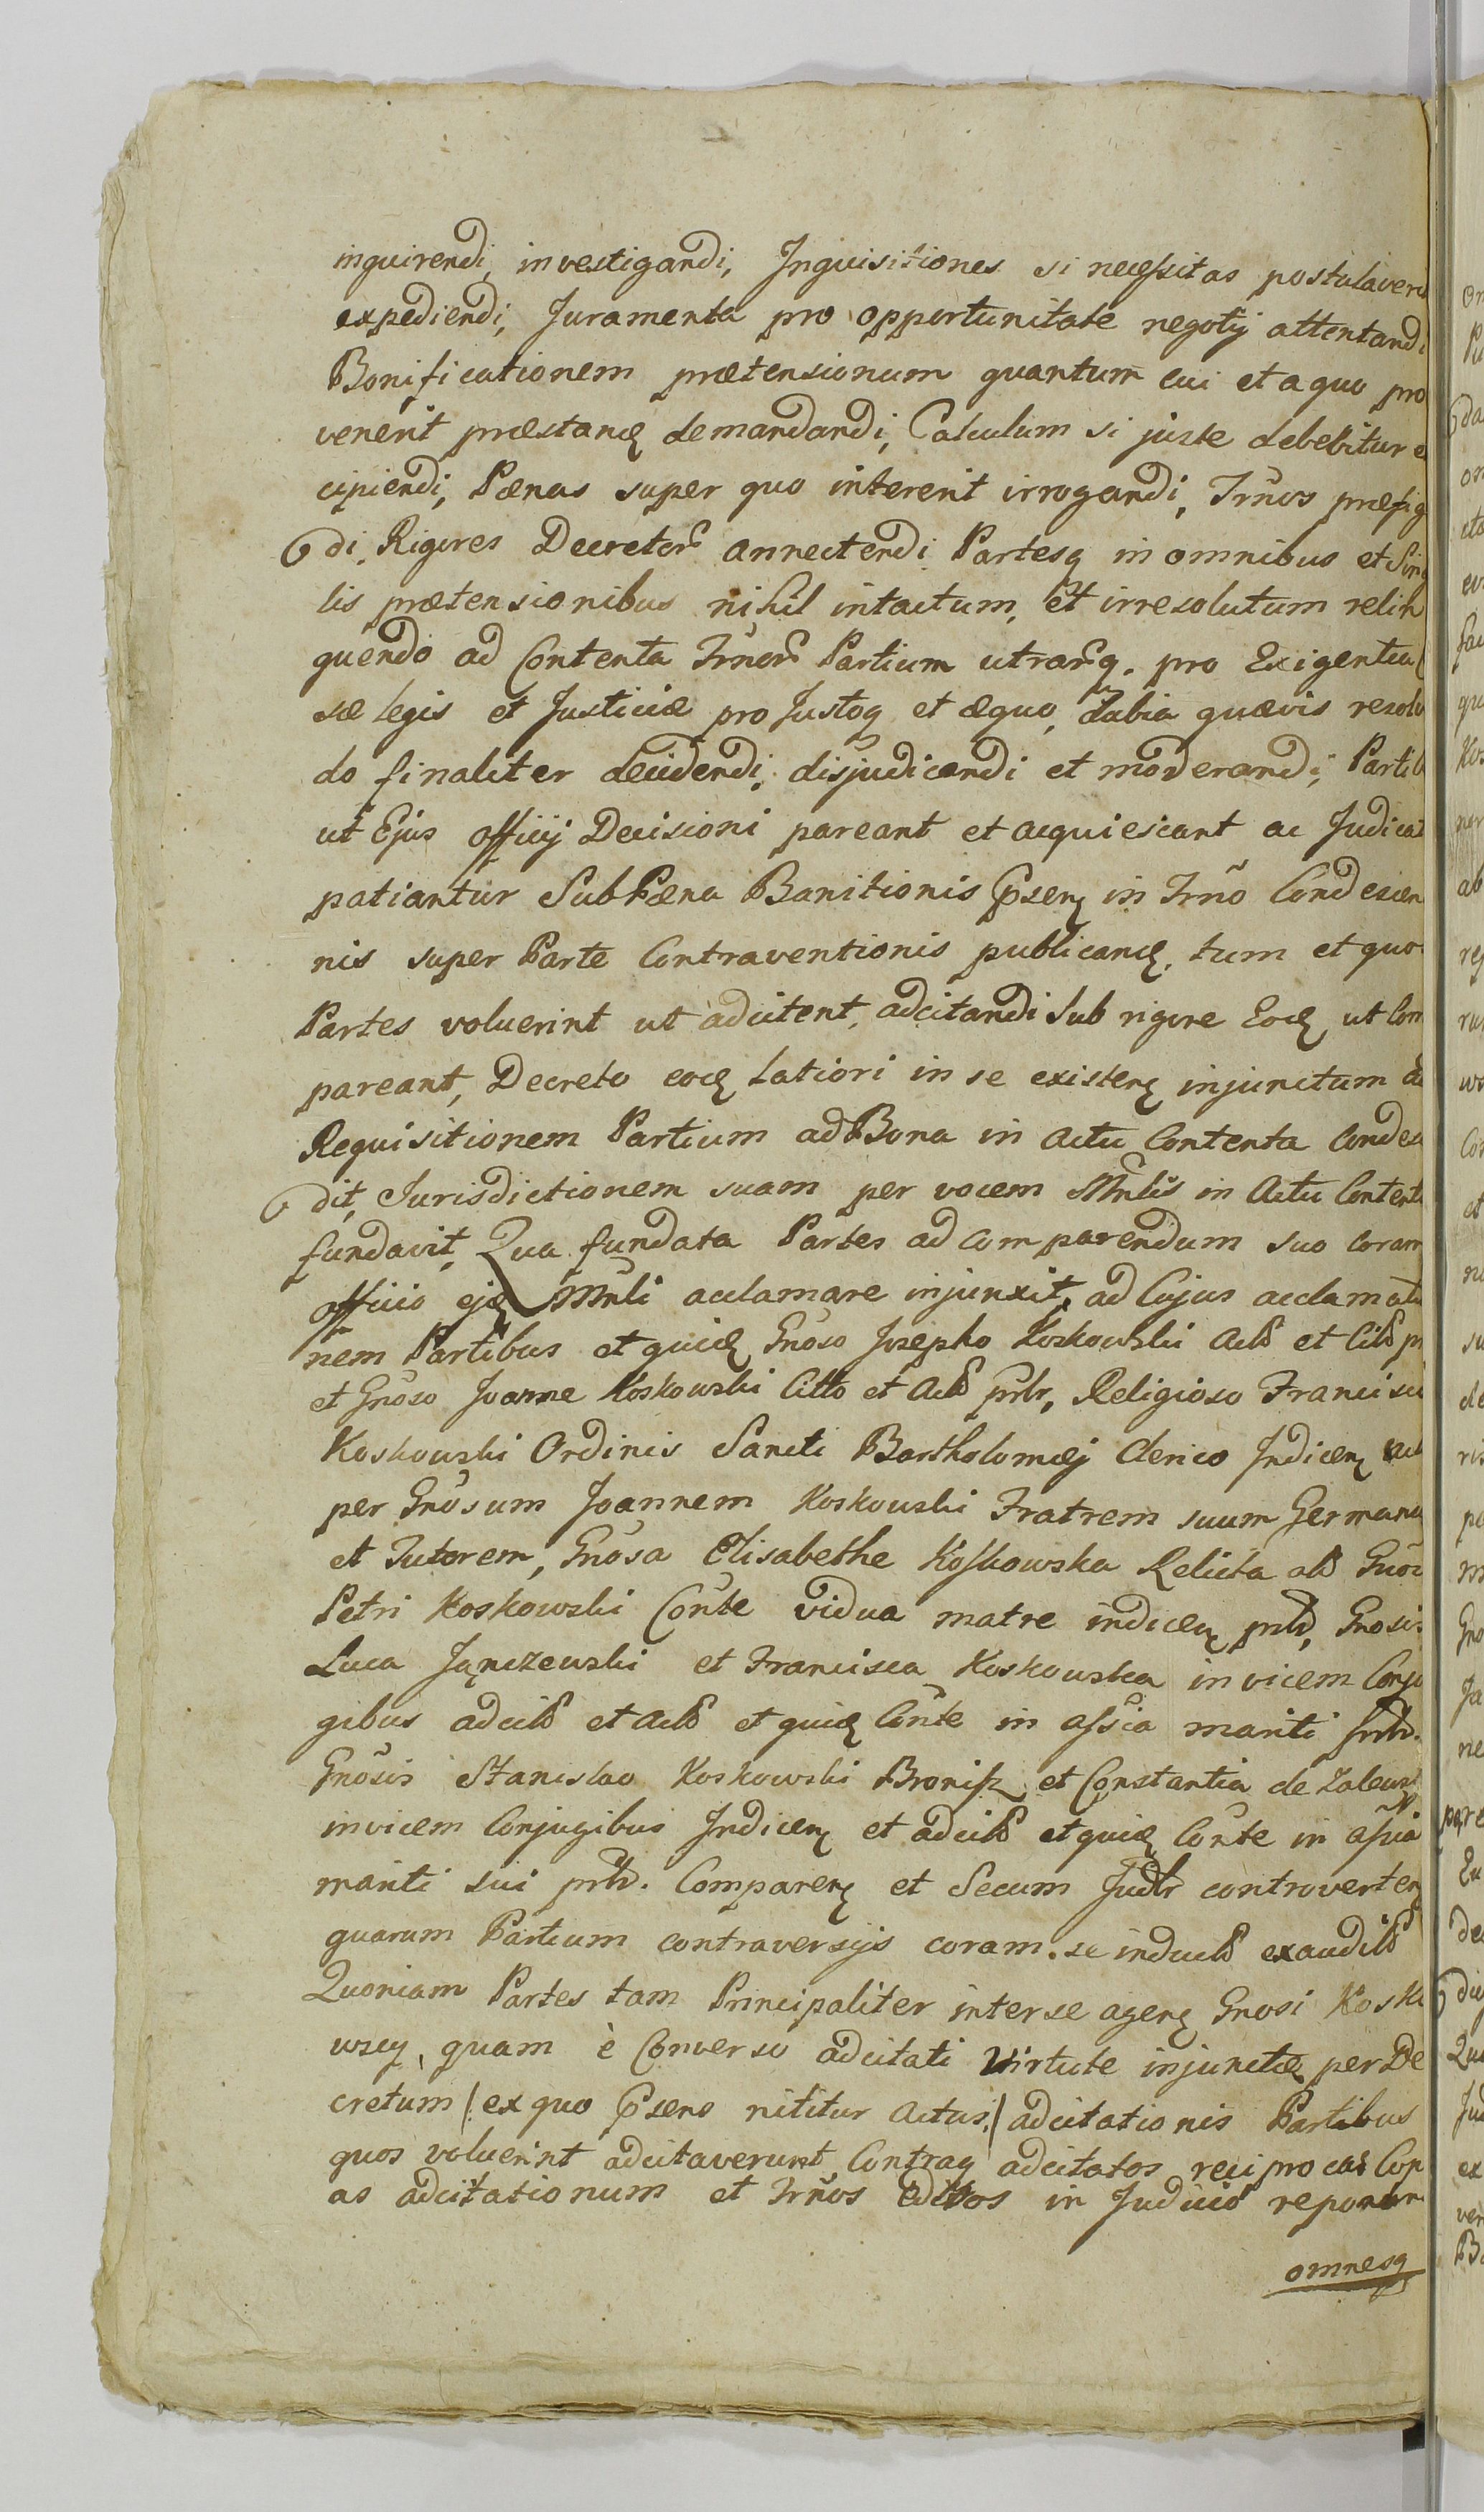 inquirendi, investigandi, Inquisitiones si necessitas postulaveri
expediendi, Juramenta pro opportunitate negotij attentandi
Bonificationem prætensionum quantum cui et a quo pro
venerit præstanę demandandi, Calculum si juste debebitur e
cipiendi, Pænas super quo intererit irrogandi, Trños præfig
di, Rigores Decretor̃ annectendi Partesq in omnibus et Sin
lis prætensionibus nihil intactum, et irresolutum relin
quendo ad Contenta Trñor̃ Partium utrarq̃. pro Exigentia
sæ legis et Justiciæ pro Justoq et æquo, dubia quævis resolv
do finaliter decidendi, disjudicandi et moderandi, Partib
ut Ejus officij Decisioni pareant et acquiescant ac Judicat
patiantur Sub Pæna Banitionis Psenę in Trño Condescen
nis super Parte Contraventionis publicanę, tum et quo
Partes voluerint ut adcitent, adcitandi Sub rigore Eocę, ut Com
pareant, Decreto eocę latiori in se existenę injunctum ad
Requisitionem Partium ad Bona in actu Contenta Condes
dit, Jurisdictionem suam per vocem Mñlis in Actu Content
fundavit, Qua fundata Partes ad comparendum suo coram
officio eję Mñli acclamare injunxit, ad Cujus acclamatio
nem Partibus et quidę Gnõso Josepho Koskowski Actõ et Citõ p
et Gnõso Joanne Koskowski Citto et Actõ prñtr, Religioso Francisco
Koskowski Ordinis Sancti Bartholomæj Clerico Indicenę
per Gnõsum Joannem Koskowski Fratrem suum German
et Tutorem, Gnõsa Elisabethe Koskowska Relicta olõ Gnõs
Petri Koskowski Cor̃te vidua matre indicenę prñtr, Gnosis
Luca Jączewski et Francisca Koskowska invicem Conju
gibus adcitõ et actõ et quidę Cor̃te in assia mariti
Gnõsis Stanislao Koskowski Bronisz et Constantia de Zalewsk
invicem Conjugibus Indicenę et adcitõ et quidę Cor̃te in assia
mariti sui prñtr. Comparenę et Secum Judtr controvertenę
quarum Partium controversijs coram se inductõ exauditõ
Quoniam Partes tam Principaliter inter se agenę Gnosi Kosko
wscy, quam è Converso adcitati Virtute injunctę per De
cretum /: ex quo Psens nititur Actus :/ adcitationis Partibus
quos voluerint adcitaverunt Contraq adcitatos reciprocas Cop
as adcitationum et Trños Editos in Judicio reponun
omnesq